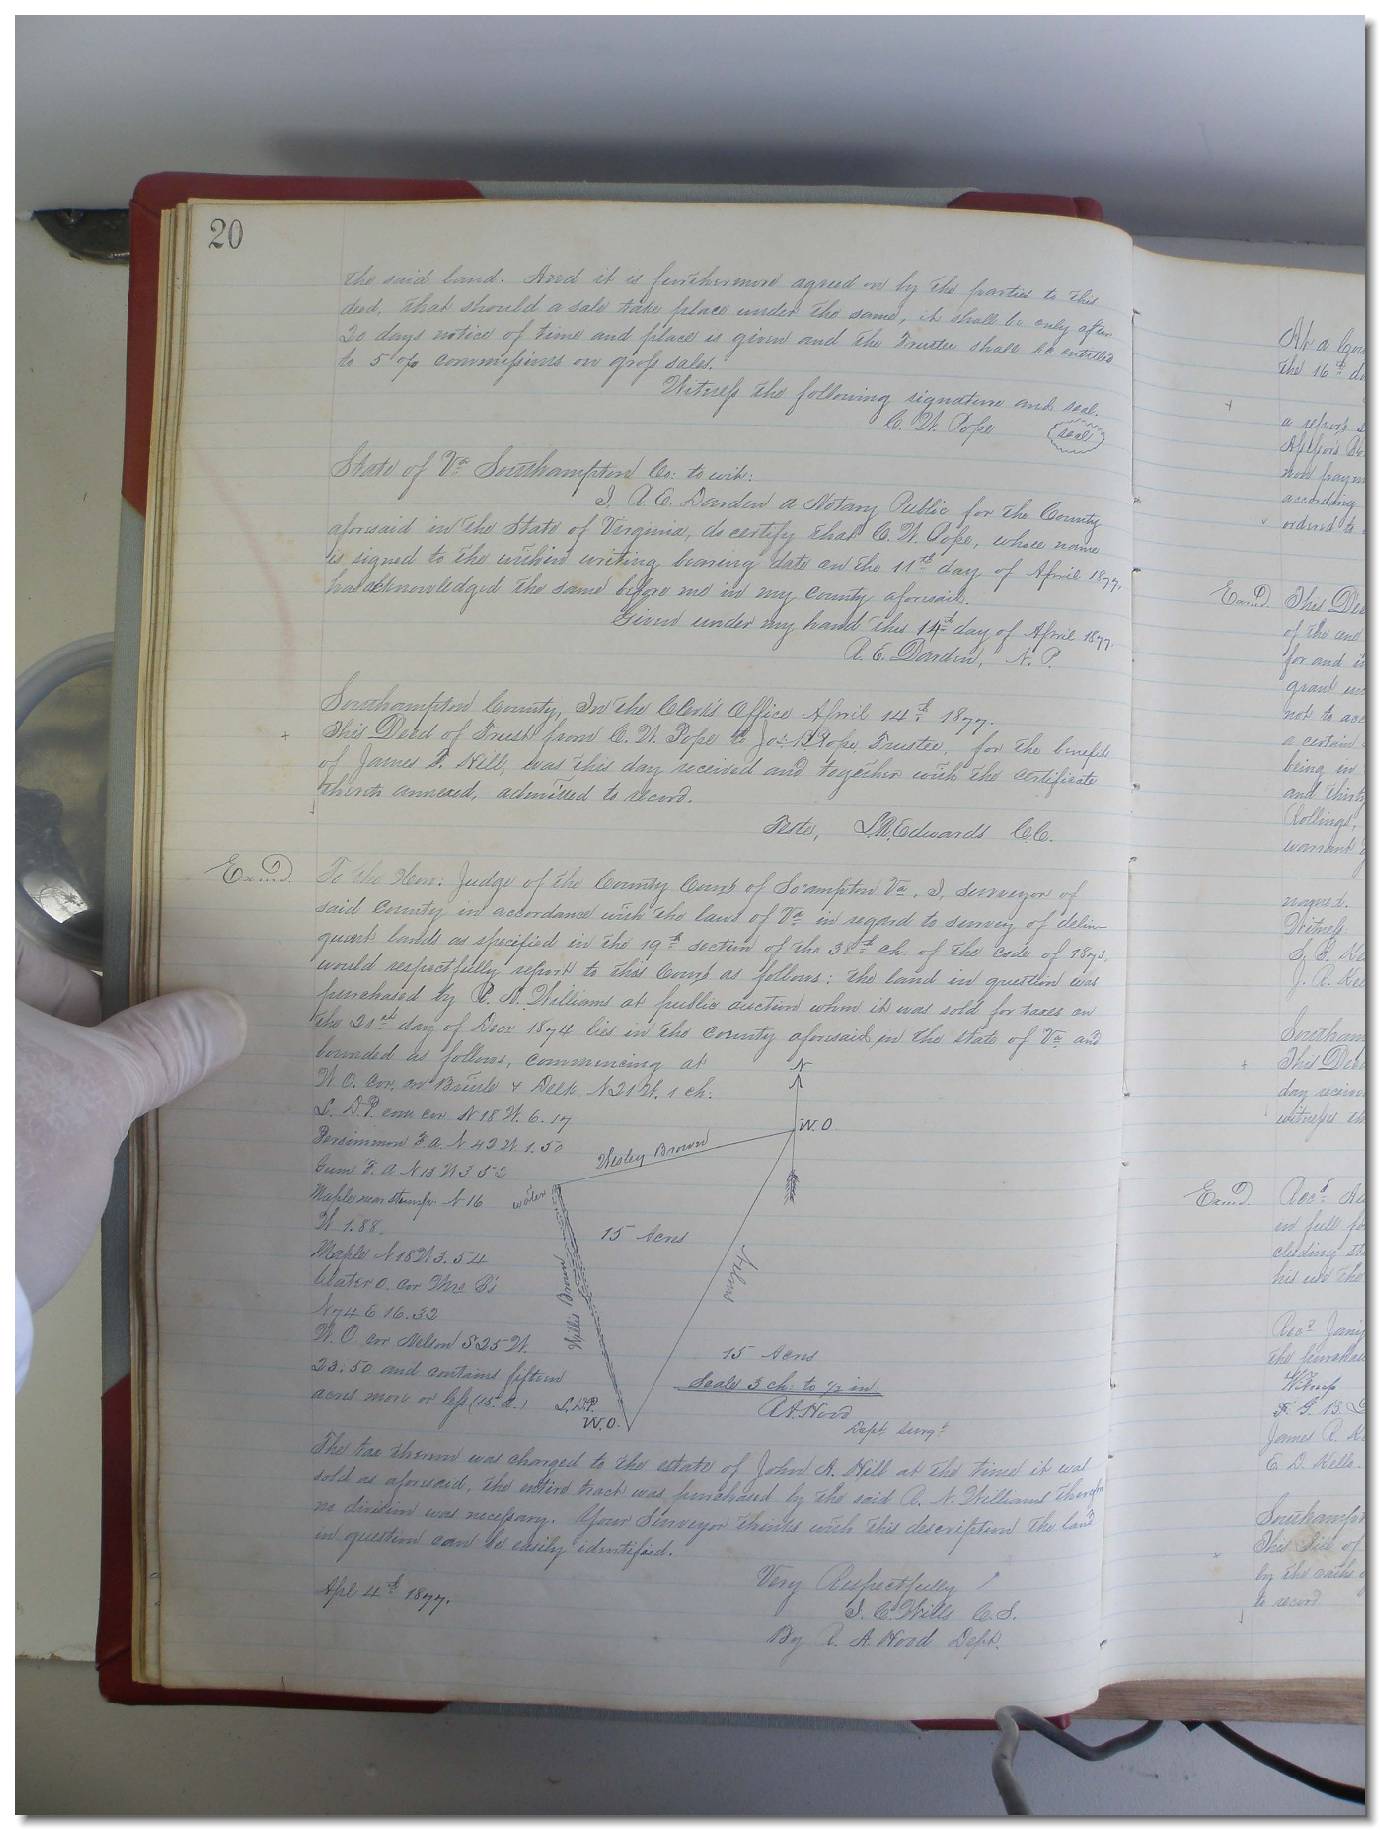 20
the said land. And it is furthermore agreed on by the parties to this
deed, that should a sale take place under the same, it shall be only after
20 days notice of time and place is given and the Trustee shall be entitled
to 5 % commissions on gross sales.
Witness the following signature and seal.
C. W. Pope (seal)
State of Va Southampton Co: to wit:
I, A. E. Darden a Notary Public for the County
aforesaid in the State of Virginia, do certify that C. W. Pope, whose name
is signed to the within writing bearing date on the 11th day of April 1877,
has acknowledged the same before me in my county aforesaid.
Given under my hand this 14th day of April 1877.
A. E. Darden, N. P.
Southampton County, In the Clerk's Office April 14th 1877.
+ This Deed of Trust from C. W. Pope to Jos. Pope, Trustee, for the benefit
of James F. Hill, was this day received and together with the certificate
thereto annexed, admitted to record.
Teste, L. R. Edwards C.C.
Exmd. To the Hon: Judge of the County Court of So'ampton Va. I, surveyor of
said County in accordance with the laws of Va in regard to survey of delin-
quent lands as specified in the 19th section of the 38th ch. of the code of 1873,
would respectfully report to this Court as follows: the land in question was
purchased by R. N. Williams at public auction when it was sold for taxes on
the day of Decr 1874 lies in the county aforesaid, in the state of Va and
bounded as follows, commencing at
W. O. cor. on & Delk N 21 W. 1 ch.
L. D. P. com cor N 18 W. 6. 17
Persimmon F. A. N 42 W 1. 50
Gum F. A N 13 W 3 52
Maple near stump N 16
W 1.88.
Maple N 18 W 3. 54
Water O. cor Mrs B's
N 74 E 16. 32
W. O cor Nelson S 25 W.
23. 50 and contains fifteen
acres more or less (15 a.)
N
W. O
Wesley Brown
water
15 Acres
Willis Brown
Nelson
15 Acres
Scale 3 ch. to 1/2 in
R A. Wood
Dept. Surv.
L. D. P.
W. O.
The tax thereon was charged to the estate of John A. Hill at the time it was
sold as aforesaid, the entire tract was purchased by the said R. N. Williams therefore
no division was necessary. Your Surveyor thinks with this description the land
in question can be easily identified.
Very Respectfully
Apl 4th 1877.
J. C. Wills C. S.
By R. A. Wood Dept.
the 16th
a report
according
ordered to
Exmd. This Deed
of the one
for and
grant
not to
a certain
being in
and thirty
Rollings,
warrant
named.
Witness
J. R.
Southam
+ This Deed
day
witness th
Exmd. Recd
in full
his
Recd
the
Witness
James R.
E. D. Kello
Southampt
This of
by the oaths
to record